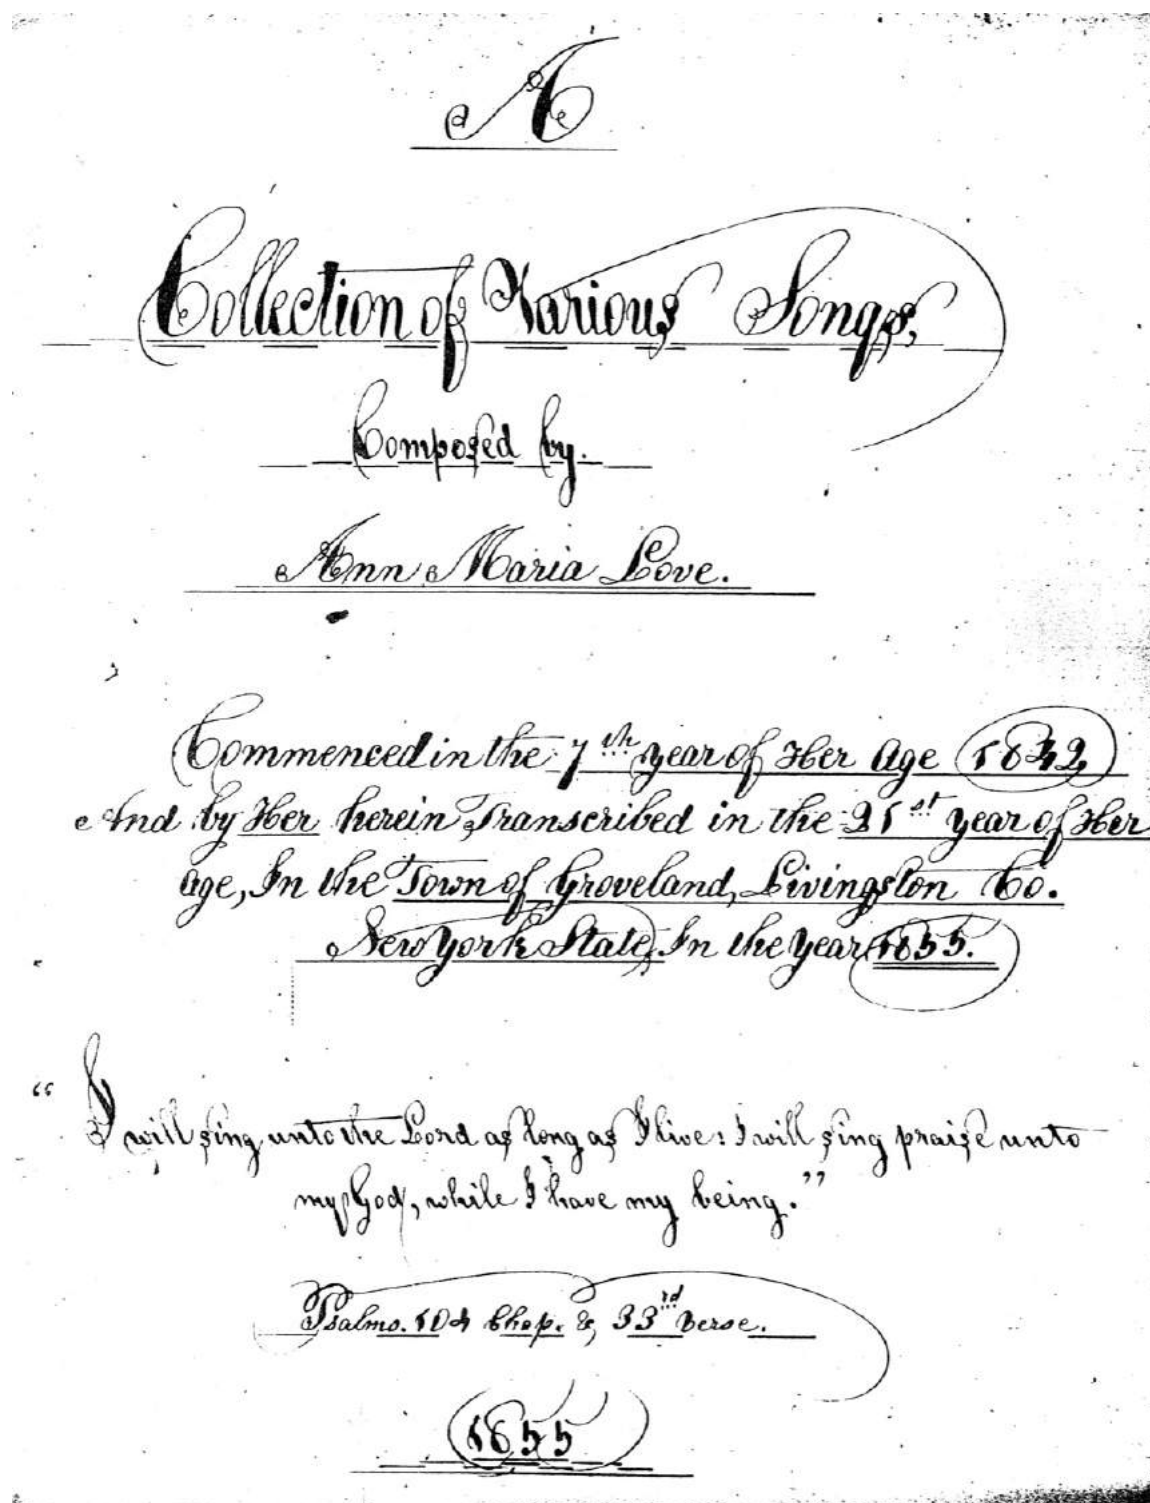 A
Collection of Various Songs,
Composed by.
Ann Maria Love.
Commenced in the 7th year of Her Age 1842
And by Her herein Transcribed in the 21st year of Her
age, In the Town of Groveland, Livingston Co.
New York State, In the Year 1855.
"I will sing unto the Lord as long as I live: I will sing praise unto
my God, while I have my being."
Psalms. 104 Chap. & 33rd Verse.
1855